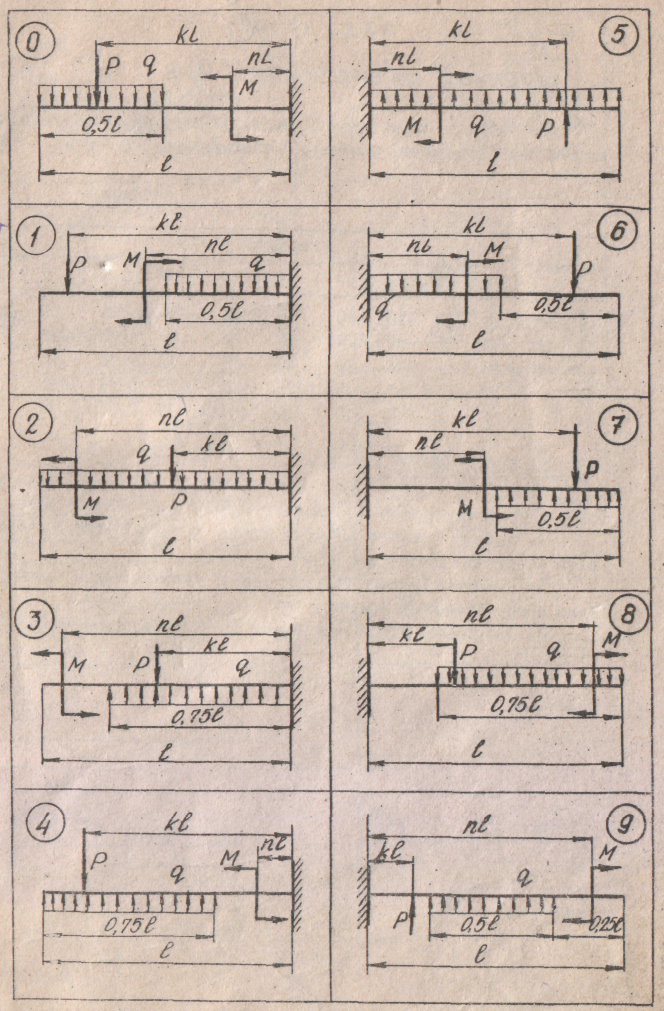 0
kl
nl
P
q
M
0,5l
l
5
kl
nl
M
q
P
l
1
kl
nl
P
M
q
0,5l
l
6
kl
nl
M
P
q
0,5l
l
2
nl
q
kl
M
P
l
7
kl
nl
P
M
0,5l
l
3
nl
kl
M
P
q
0,75l
l
8
nl
kl
P
q
M
0,75l
l
4
kl
nl
P
q
M
0,75l
l
9
nl
kl
M
q
P
0,5l
0,25l
l